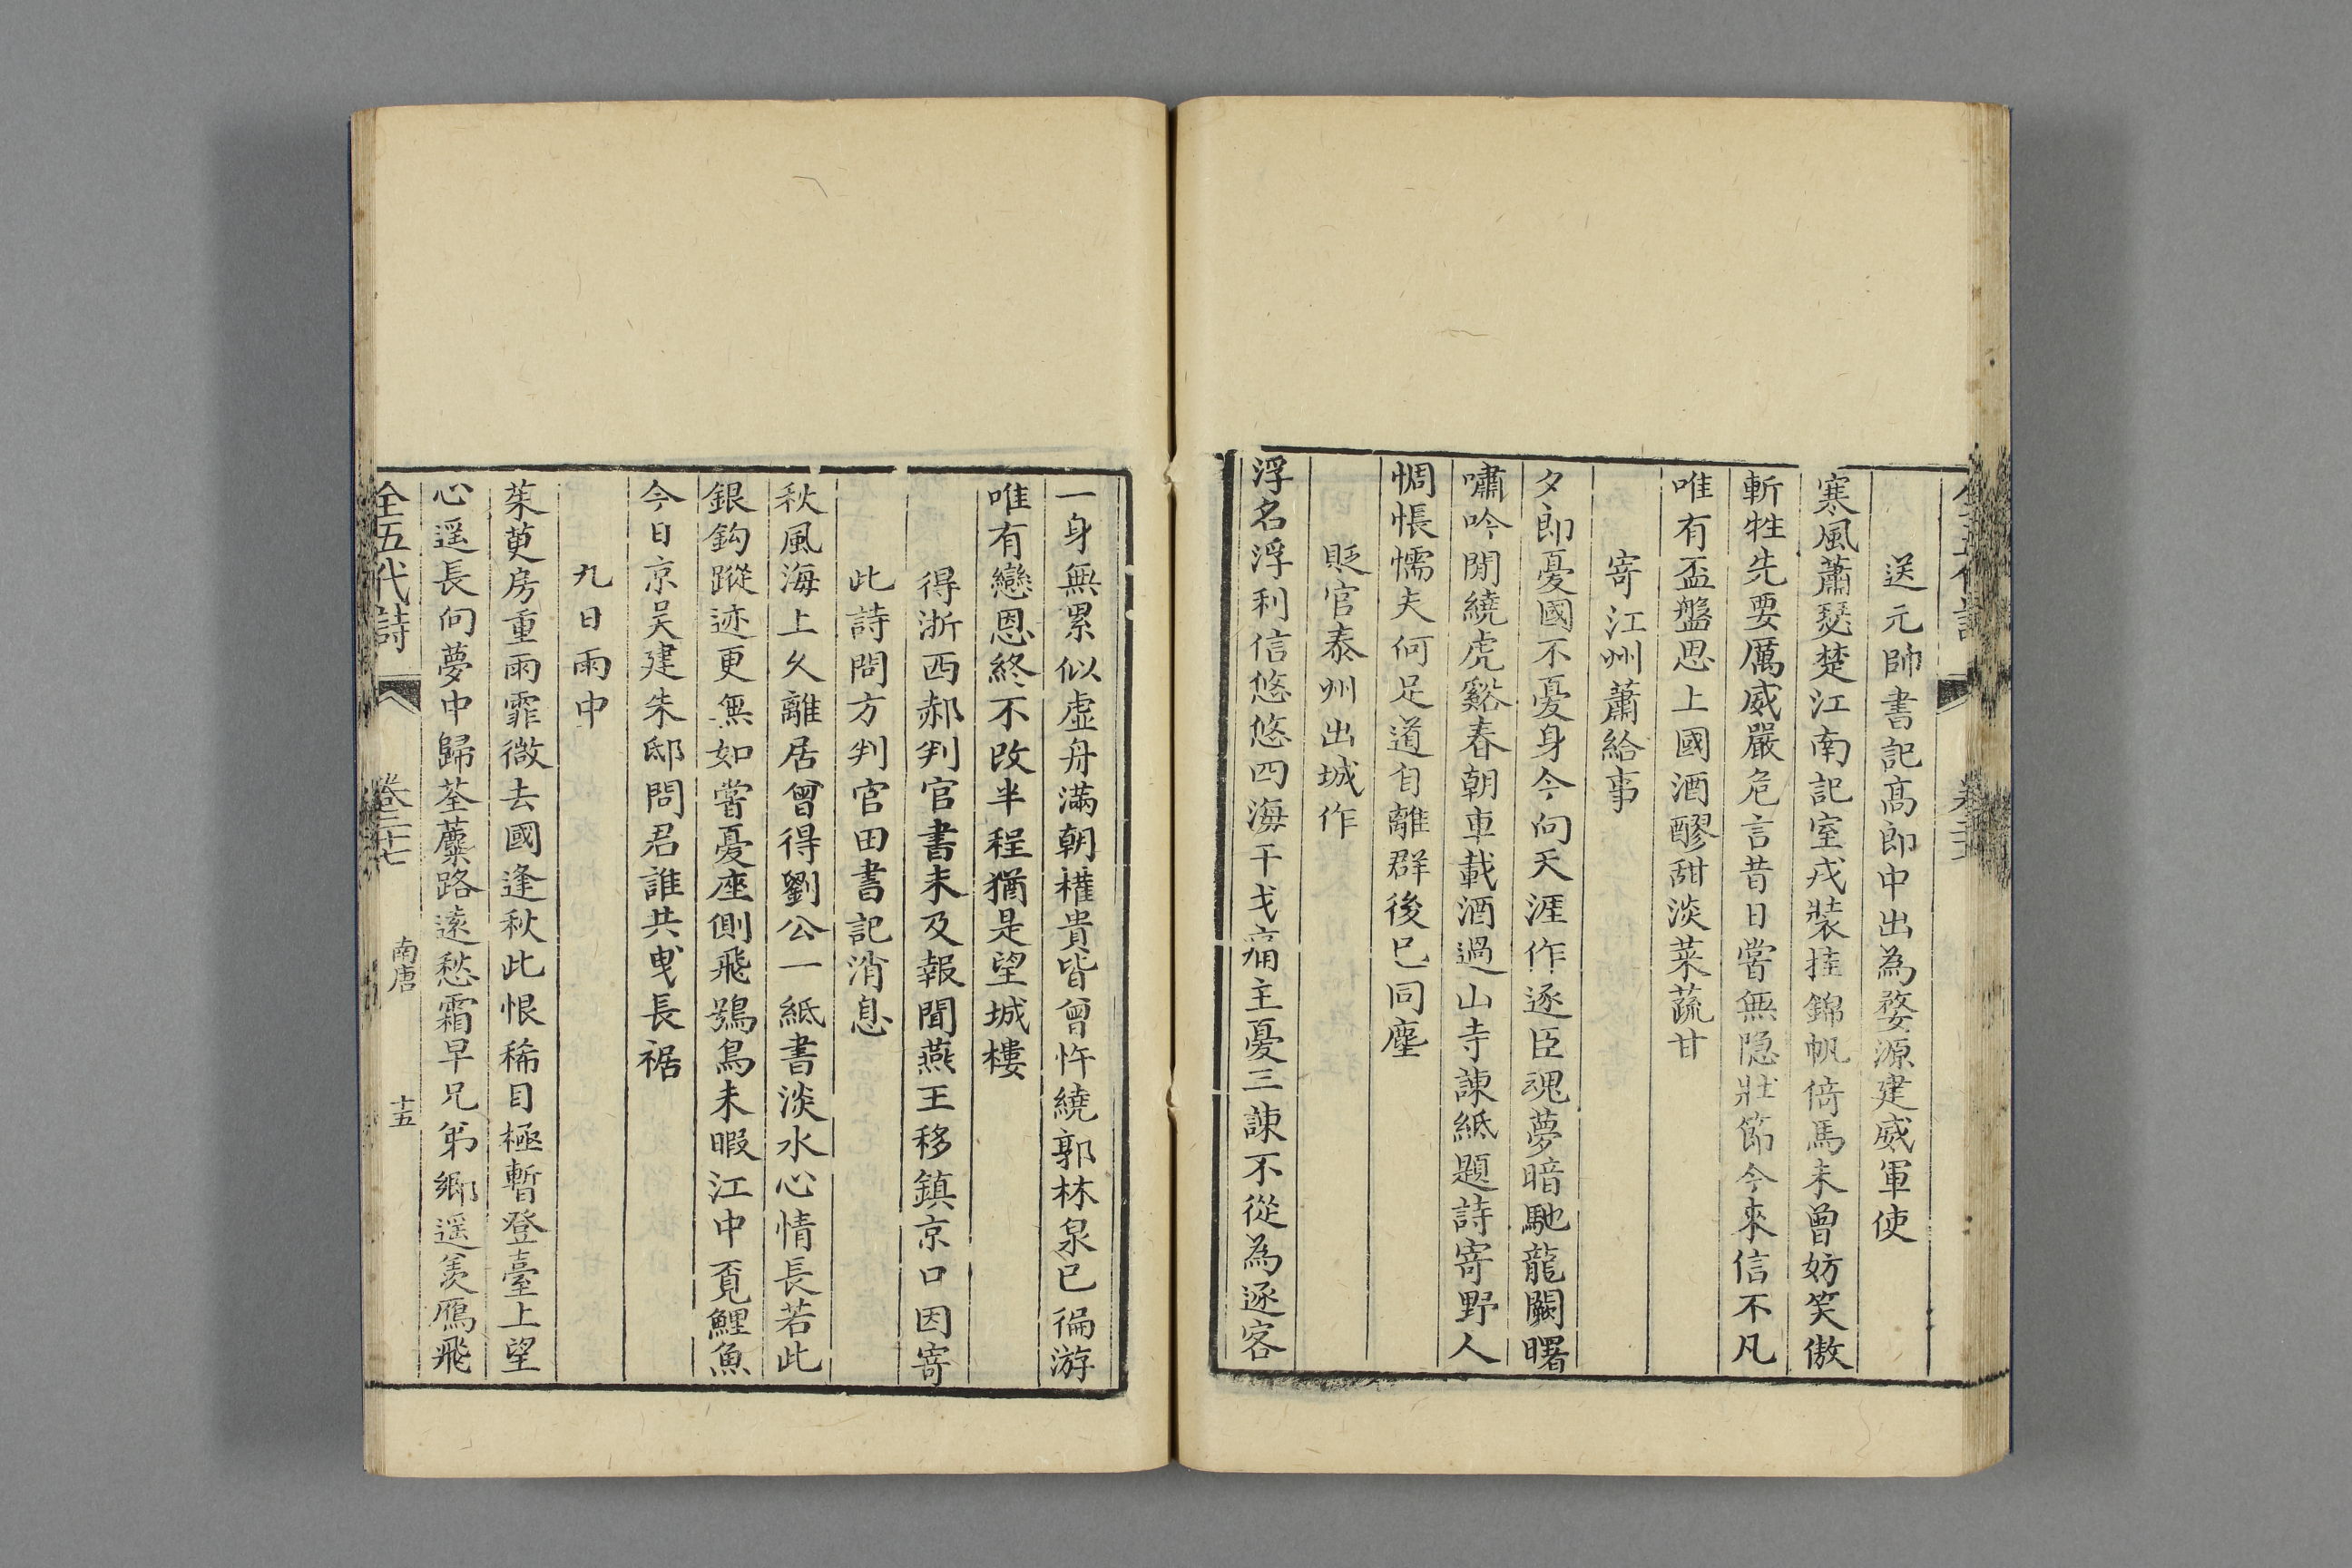 送元帥書記高郎中出為婺源建威軍使
寒風蕭瑟楚江南記室戎裝挂錦帆倚馬未曾妨笑傲
斬牲先要厲威嚴危言昔日嘗無隐壯節今來信不凡
唯有盃盤思上國酒醪甜淡菜蔬甘
寄江州蕭給事
夕郎憂國不憂身今向天涯作逐臣魂夢暗馳龍闕曙
嘯吟閒繞虎谿春朝車載酒過山寺諫紙題詩寄野人
惆悵懦夫何足道自離群後已同塵
貶官泰州出城作
浮名浮利信悠悠四海干戈痛主憂三諫不從為逐客
一身無累似虛舟滿朝權貴皆曾忤繞郭林泉已徧游
唯有戀恩終不改半程猶是望城樓
得浙西郝判官書未及報聞燕王移鎮京口因寄
此詩問方判官田書記消息
秋風海上久離居曾得劉公一紙書淡水心情長若此
銀鈎蹤迹更無如嘗憂座側飛鵶鳥未暇江中覓鯉魚
今日京吴建朱邸問君誰共曳長裾
九日雨中
茱萸房重雨霏微去國逢秋此恨稀目極暫登臺上望
心遥長向夢中歸荃蘪路遠愁霜早兄弟鄉遥羨鴈飛
全五代詩
卷三十七
南唐
十五